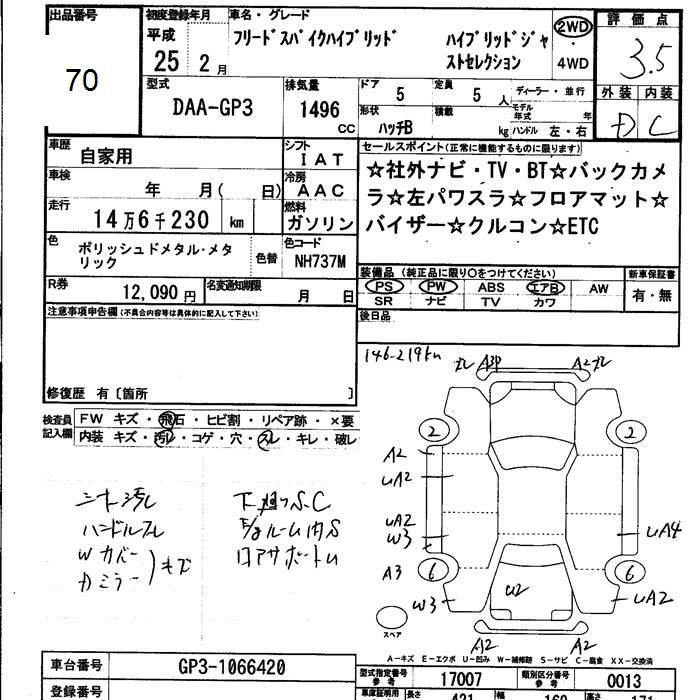 出品番号
70
初度登録年月
平成
25 2月
車名・グレード
フリードスパイクハイブリッド ハイブリッドジャ
ストセレクション
2WD
4WD
評価点
3.5
外装 内装
D C
型式
DAA-GP3
排気量
1496
CC
ドア
5
定員
5人
形状
ハッチB
積載
kg
ディーラー・並行
モデル
年式 年
ハンドル 左・右
車歴
自家用
シフト
IAT
車検
年 月( 日)
冷房
AAC
走行
14万6千230 km
燃料
ガソリン
色
ポリッシュドメタル・メタ
リック
色替
色コード
NH737M
R券
12,090円
名変通知期限
月 日
セールスポイント(正常に機能するものに限ります)
☆社外ナビ・TV・BT☆バックカメ
ラ☆左パワスラ☆フロアマット☆
バイザー☆クルコン☆ETC
装備品(純正品に限り○をつけてください)
PS PW ABS エアB AW
SR ナビ TV カワ
新車保証書
有・無
後日品
注意事項申告欄(不具合内容等は具体的に記入して下さい)
修復歴 有〔箇所 〕
検査員
記入欄
FW キズ・飛石・ヒビ割・リペア跡・×要
内装 キズ・汚レ・コゲ・穴・スレ・キレ・破レ
シート汚レ
ハンドルスレ
Wカバー
カミラー
キズ
下廻りS.C
E/gルーム内S
ロアサポートU
146-219km
A3P
A2
2
2
A2
UA2
UA2
W3
UA4
A3
6
6
W3
U2
UA2
A2
A2
スペア
A-キズ E-エクボ U-凹み W-補修跡 S-サビ C-腐食 XX-交換済
車台番号
GP3-1066420
型式指定番号
参考
17007
類別区分番号
参考
0013
登録番号
車庫証明用
長さ
421
幅
169
高さ
171